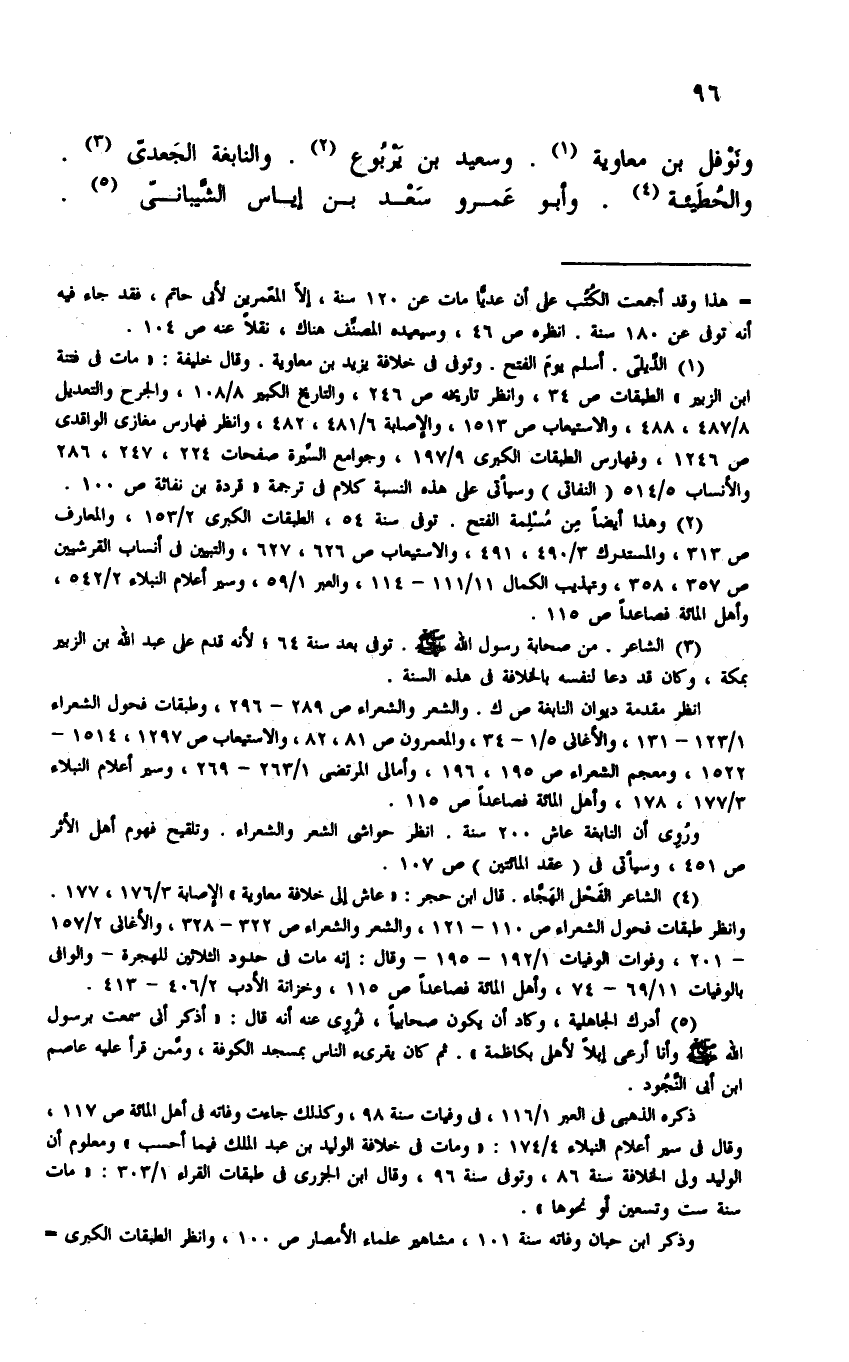 ٩٦
ونَوْفل بن معاوية (١) . وسعيد بن يَرْبُوع (٢) . والنابغة الجَعدىّ (٣) .
والحُطَيئة (٤) . وأبو عَمرو سَعْد بن إياس الشَّيبانىّ (٥) .
= هذا وقد أجمعت الكُتُب على أن عديًّا مات عن ١٢٠ سنة ، إلاّ المعّمرين لأبى حاتم ، فقد جاء فيه
أنه توفى عن ١٨٠ سنة . انظره ص ٤٦ ، وسيعيده المصنَّف هناك ، نقلاً عنه ص ١٠٤ .
(١) الدِّيلىّ . أسلم يومَ الفتح . وتوفى فى خلافة يزيد بن معاوية . وقال خليفة : « مات فى فتنة
ابن الزبير » الطبقات ص ٣٤ ، وانظر تاريخه ص ٢٤٦ ، والتاريخ الكبير ١٠٨/٨ ، والجرح والتعديل
٤٨٧/٨ ، ٤٨٨ ، والاستيعاب ص ١٥١٣ ، والإصابة ٤٨١/٦ ، ٤٨٢ ، وانظر فهارس مغازى الواقدى
ص ١٢٤٦ ، وفهارس الطبقات الكبرى ١٩٧/٩ ، وجوامع السِّيرة صفحات ٢٢٤ ، ٢٤٧ ، ٢٨٦
والأنساب ٥١٤/٥ ( النفاثى ) وسيأتى على هذه النسبة كلام فى ترجمة « قردة بن نفاثة ص ١٠٠ .
(٢) وهذا أيضاً مِن مُسْلِمة الفتح . توفى سنة ٥٤ ، الطبقات الكبرى ١٥٣/٢ ، والمعارف
ص ٣١٣ ، والمستدرك ٤٩٠/٣ ، ٤٩١ ، والاستيعاب ص ٦٢٦ ، ٦٢٧ ، والتبيين فى أنساب القرشيين
ص ٣٥٧ ، ٣٥٨ ، وتهذيب الكمال ١١١/١١ – ١١٤ ، والعبر ٥٩/١ ، وسير أعلام النبلاء ٥٤٢/٢ ،
وأهل المائة فصاعداً ص ١١٥ .
(٣) الشاعر . من صحابة رسول الله ﷺ . توفى بعد سنة ٦٤ ؛ لأنه قدم على عبد الله بن الزبير
بمكة ، وكان قد دعا لنفسه بالخلافة فى هذه السنة .
انظر مقدمة ديوان النابغة ص ك . والشعر والشعراء ص ٢٨٩ – ٢٩٦ ، وطبقات فحول الشعراء
١٢٣/١ – ١٣١ ، والأغانى ١/٥ – ٣٤ ، والمعمرون ص ٨١ ، ٨٢ ، والاستيعاب ص ١٢٩٧ ، ١٥١٤ –
١٥٢٢ ، ومعجم الشعراء ص ١٩٥ ، ١٩٦ ، وأمالى المرتضى ٢٦٣/١ – ٢٦٩ ، وسير أعلام النبلاء
١٧٧/٣ ، ١٧٨ ، وأهل المائة فصاعداً ص ١١٥ .
ورُوِى أن النابغة عاش ٢٠٠ سنة . انظر حواشى الشعر والشعراء . وتلقيح فهوم أهل الأثر
ص ٤٥١ ، وسيأتى فى ( عقد المائتين ) ص ١٠٧ .
(٤) الشاعر الفَحْل الهَجَّاء . قال ابن حجر : « عاش إلى خلافة معاوية » الإصابة ١٧٦/٣ ، ١٧٧ .
وانظر طبقات فحول الشعراء ص ١١٠ – ١٢١ ، والشعر والشعراء ص ٣٢٢ – ٣٢٨ ، والأغانى ١٥٧/٢
– ٢٠١ ، وفوات الوفيات ١٩٢/١ – ١٩٥ – وقال : إنه مات فى حدود الثلاثين للهجرة – والوافى
بالوفيات ٦٩/١١ – ٧٤ ، وأهل المائة فصاعداً ص ١١٥ ، وخزانة الأدب ٤٠٦/٢ – ٤١٣ .
(٥) أدرك الجاهلية ، وكاد أن يكون صحابياً ، فرُوِى عنه أنه قال : « أذكر أنى سمعت برسول
الله ﷺ وأنا أرعى إبلاً لأهلى بكاظمة » . ثم كان يقرىء الناس بمسجد الكوفة ، وممَّن قرأ عليه عاصم
ابن أبى النَّجُود .
ذكره الذهبى فى العبر ١١٦/١ ، فى وفيات سنة ٩٨ ، وكذلك جاءت وفاته فى أهل المائة ص ١١٧ ،
وقال فى سير أعلام النبلاء ١٧٤/٤ : « ومات فى خلافة الوليد بن عبد الملك فيما أحسب » ومعلوم أن
الوليد ولى الخلافة سنة ٨٦ ، وتوفى سنة ٩٦ ، وقال ابن الجزرى فى طبقات القراء ٣٠٣/١ : « مات
سنة ست وتسعين أو نحوها » .
وذكر ابن حبان وفاته سنة ١٠١ ، مشاهير علماء الأمصار ص ١٠٠ ، وانظر الطبقات الكبرى =